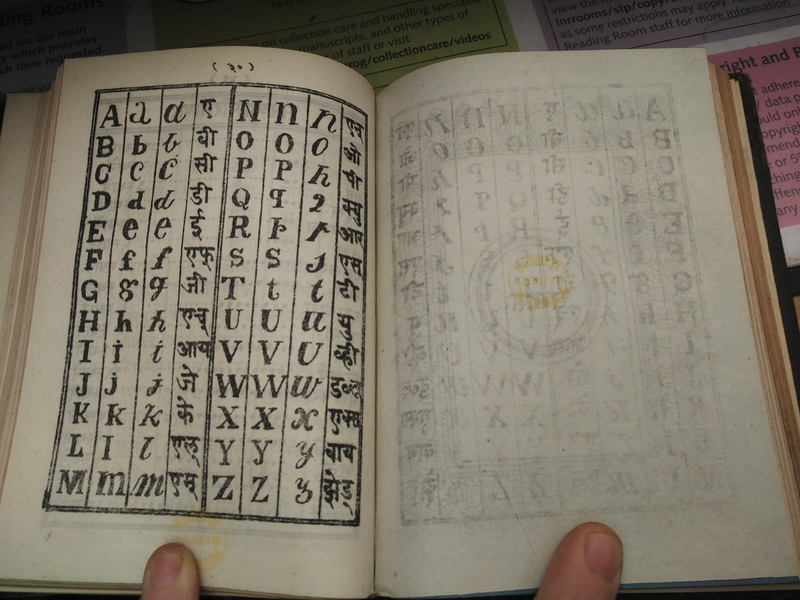 ding Rooms
d via our main
y which provides
ch item requested.
best by
on collection care and handling
manuscripts, and other types of
of staff or visit
/collectioncare/videos
view the
inrrooms/slp/
as some restrictions may apply.
Reading Room staff for more information
right and
(२०)
A a a ए N n n एन
B b b बी O O o ओ
C c c सी P P p पी
D d d डी Q q q क्यु
E e e ई R r r आर
F f f एफ् S S s एस्
G g g जी T t t टी
H h h एच् U U u यु
I i i आय V V v व्ही
J j j जे W W w डब्ल्यू
K k k के X X x एक्स
L l l एल् Y Y y वाय
M m m एम् Z Z z झेड्